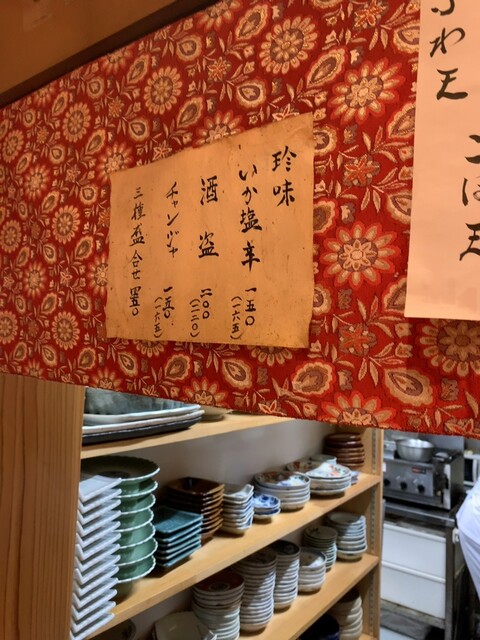 わ天
珍味
いか塩辛 一五〇
(一六五)
酒盗 二〇〇
(二二〇)
チャンジャ 一五〇
(一六五)
三種盛合せ